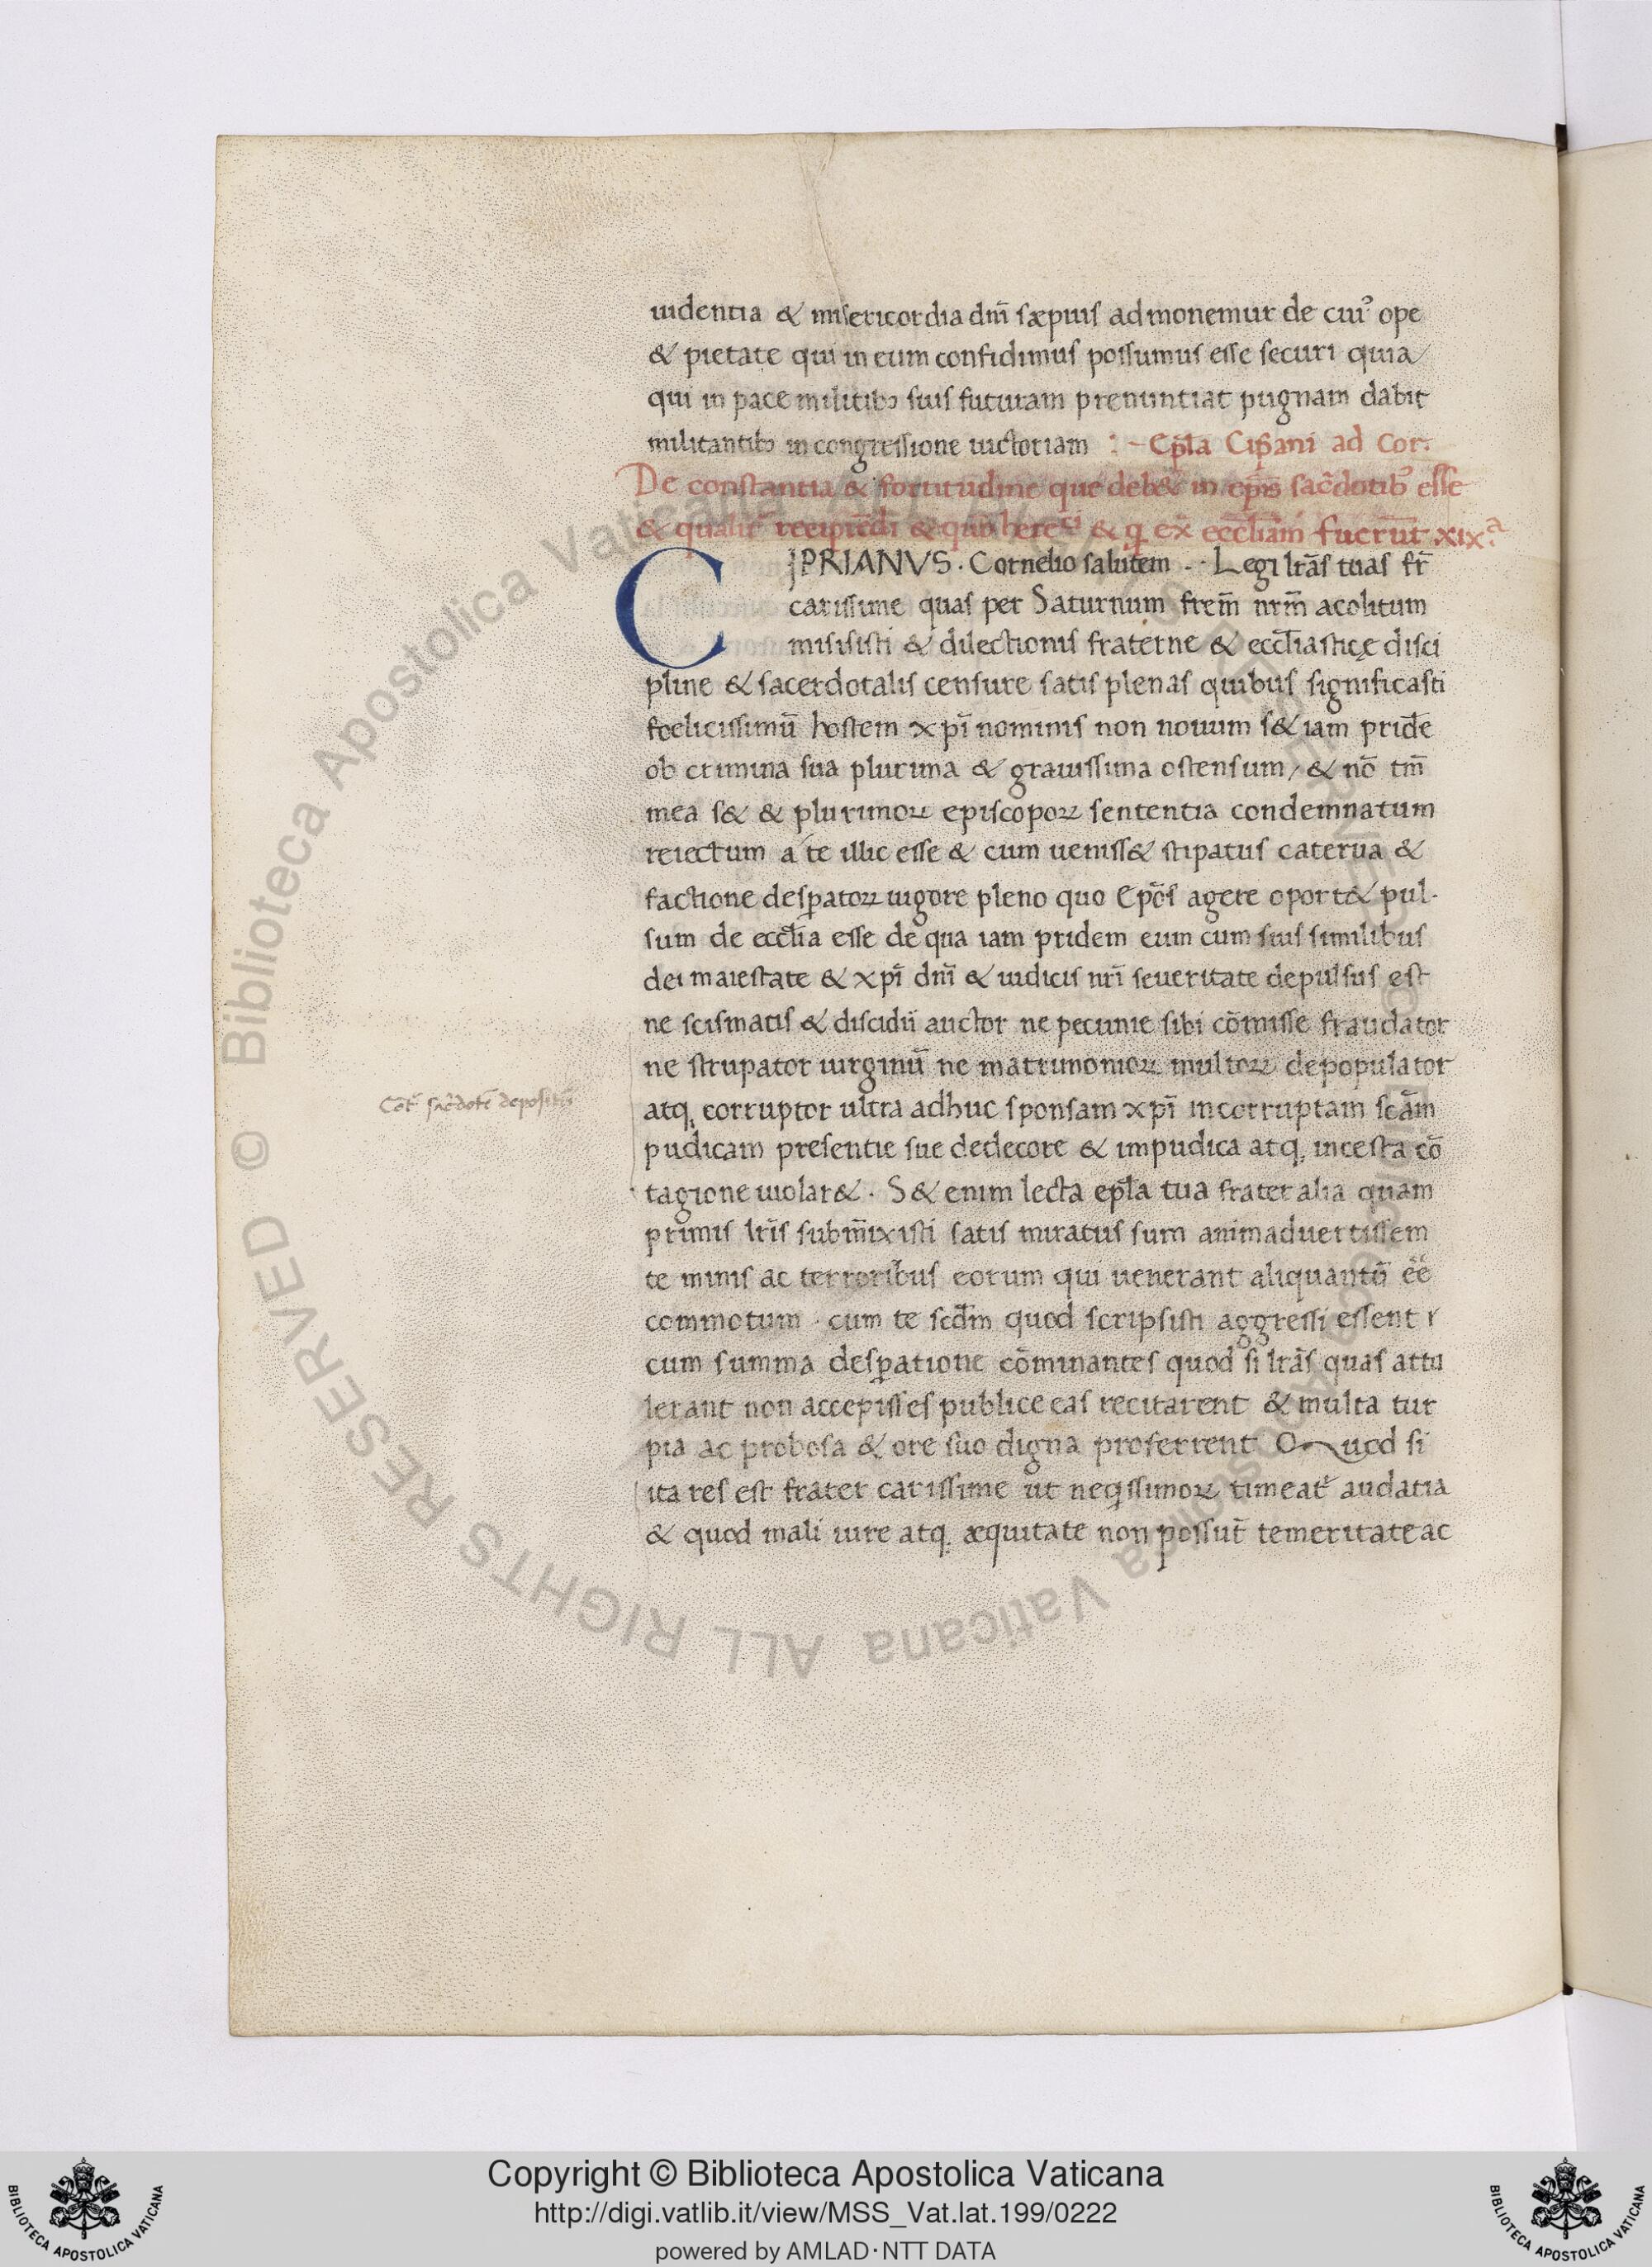 uidentia & misericordia dm̄ sæpuis admonemur de cuiꝰ ope
& pietate qui in eum confidimus possumus esse securi quia
qui in pace militibꝫ suis futuram prenuntiat pugnam dabit
militantibꝫ in congressione uictoriam :- Ep̄la Cip̄ani ad Cor.
De constantia & fortitudine que deb& in ep̄is sac̄dotibꝰ esse
& qualit̄ recipiēdi & herec̄i & q ex eccl̄iam fuerūt xix.ª
CIPRIANVS. Cornelio salutem. Legi lr̄as tuas fr̄
carissime quas per Saturnum frem̄ nrm̄ acolitum
misisisti & dilectionis fraterne & eccl̄iasticę disci
pline & sacerdotalis censure satis plenas quibus significasti
foelicissimū hostem xpī nominis non nouum s& iam pridē
ob crimina sua plurima & grauissima ostensum / & nō tm̄
mea s& & plurimoꝝ episcopoꝝ sententia condemnatum
reiectum a te illic esse & cum ueniss& stipatus caterua &
factione desꝑatoꝝ uigore pleno quo Epōs agere oport& pul.
sum de eccl̄ia esse de qua iam pridem eum cum suis similibus
dei maiestate & xpī dnī & iudicis nrī seueritate depulsus est
ne scismatis & discidii auctor ne pecunie sibi cōmisse fraudator
ne strupator uirginū ne matrimonioꝝ multoꝝ depopulator
Cor̄ sac̄dotē depositū
atqꝫ corruptor ultra adhuc sponsam xpī incorruptam scām
pudicam presentie sue dedecore & impudica atqꝫ incesta cō
tagione uiolar&. S& enim lecta epl̄a tua frater alia quam
primis lr̄is subm̄ixisti satis miratus sum animaduertissem
te minis ac terroribus eorum qui uenerant aliquantū ēē
commotum . cum te scd̄m quod scripsisti aggressi essent
cum summa desꝑatione cōminantes quod si lr̄as quas attu
lerant non accepisses publice eas recitarent & multa tur
pia ac probosa & ore suo digna proferrent Quod si
ita res est frater carissime ut neqssimoꝝ timeat̄ audatia
& quod mali iure atqꝫ æquitate non possut̄ temeritate ac
Copyright © Biblioteca Apostolica Vaticana
http://digi.vatlib.it/view/MSS_Vat.lat.199/0222
powered by AMLAD·NTT DATA
BIBLIOTECA APOSTOLICA VATICANA
BIBLIOTECA APOSTOLICA VATICANA
© Biblioteca Apostolica Vaticana
ALL RIGHTS RESERVED